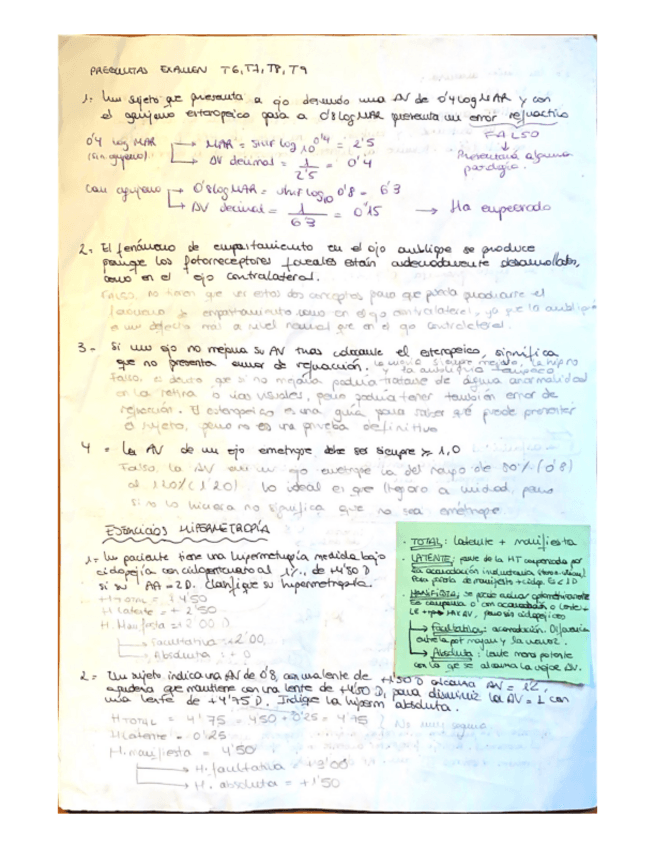 PREGUNTAS EXAMEN T6, T7, T8, T9
1. Un sujeto que presenta a ojo desnudo una AV de 0'4 logMAR y con
el agujero estenopeico pasa a 0'8 logMAR presenta un error refractivo
FALSO
Presentará alguna
patología.
0'4 log MAR
(sin agujero)
MAR = shift log10 0'4 = 2'5
AV decimal = 1/2'5 = 0'4
Con agujero
0'8 logMAR = shift log10 0'8 = 6'3
AV decimal = 1/63 = 0'15
Ha empeorado
2. El fenómeno de emportamiento en el ojo ambliope se produce
porque los fotorreceptores foveales están adecuadamente desarrollados,
como en el ojo contralateral.
Falso, no tienen que ver estos dos conceptos para que pueda producirse el
fenómeno de emportamiento como en el ojo contralateral, ya que la
es un defecto más a nivel neural que en el ojo contralateral.
3- Si un ojo no mejora su AV tras colocarle el estenopeico, significa
que no presenta error de refracción.
la miopía siempre mejora, la hipro
y la ambliopía tampoco
Falso, es cierto que si no mejora podría tratarse de alguna anormalidad
en la retina o vías visuales, pero podría tener también error de
refracción. El estenopeico es una guía para saber qué puede presentar
el sujeto, pero no es una prueba definitiva
4 = La AV de un ojo emetrope debe ser siempre ≥ 1,0
Falso, la AV en un ojo emetrope va del rango de 80% (0'8)
al 120% (1'20). Lo ideal es que llegara a unidad, pero
si no lo hiciera no significa que no sea emétrope
EJERCICIOS HIPERMETROPÍA
1= Un paciente tiene una hipermetropía medida bajo
cicloplejía con ciclopentolato al 1%, de +4'50 D
si su AA = 2D. Clasifique su hipermetropía.
H Total = + 4'50
H latente = + 2'50
H. Manifiesta = +2'00 D
Facultativa: +2'00
Absoluta: + 0
· TOTAL: latente + manifiesta
· LATENTE: parte de la HT compensada por
la acomodación involuntaria
· MANIFIESTA, se puede
Es
Facultativa: acomodación. Diferencia
entre la por mayor y la menor.
Absoluta: lente menos potente
con la que se alcanza la mejor AV.
2 = Un sujeto indica una AV de 0'8, con una lente de +1'50 D alcanza AV = 1'2,
agudeza que mantiene con una lente de +4'50 D, para disminuir la AV = 1 con
una lente de +4'75 D. Indique la hiperm absoluta.
H Total = 4'75 = 4'50 + 0'25 = 4'75 ? No muy segura
H latente = 0'25
H. manifiesta = 4'50
H. facultativa = +3'00
H. absoluta = +1'50